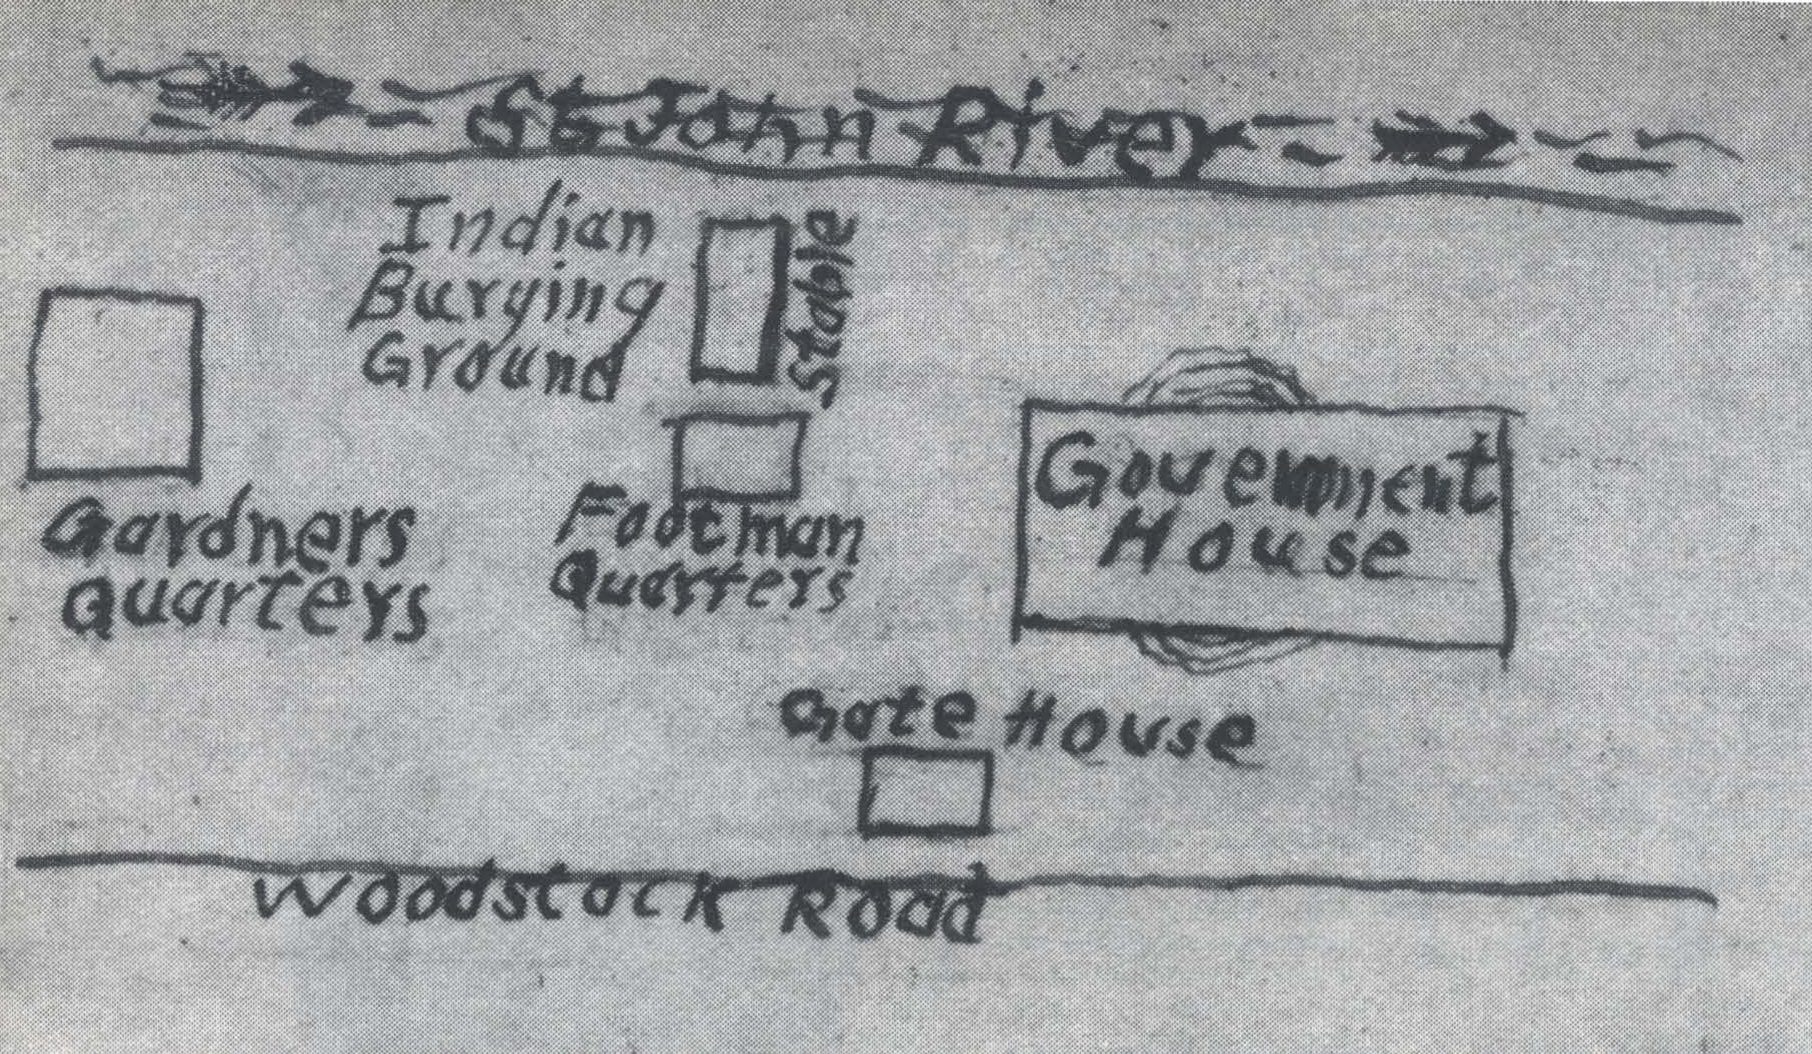 St John River
Indian
Burying
Ground
Stable
Gardners
quarters
Footman
Quarters
Government
House
Gate House
Woodstock Road